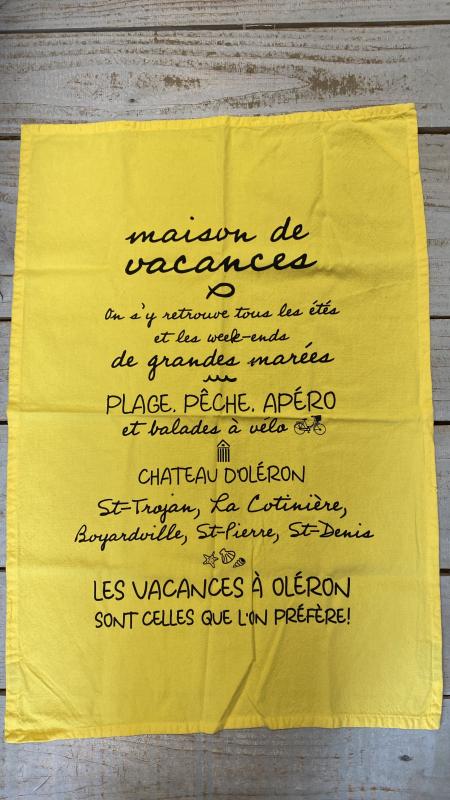 maison de
vacances
On s'y retrouve tous les étés
et les week-ends
de grandes marées
PLAGE, PÊCHE, APÉRO
et balades à vélo
CHATEAU D'OLÉRON
St-Trojan, La Cotinière,
Boyardville, St-Pierre, St-Denis
LES VACANCES À OLÉRON
SONT CELLES QUE L'ON PRÉFÈRE!